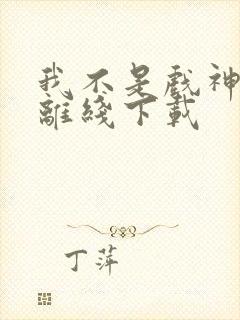 我不是戲神
離綫下載
丁萍